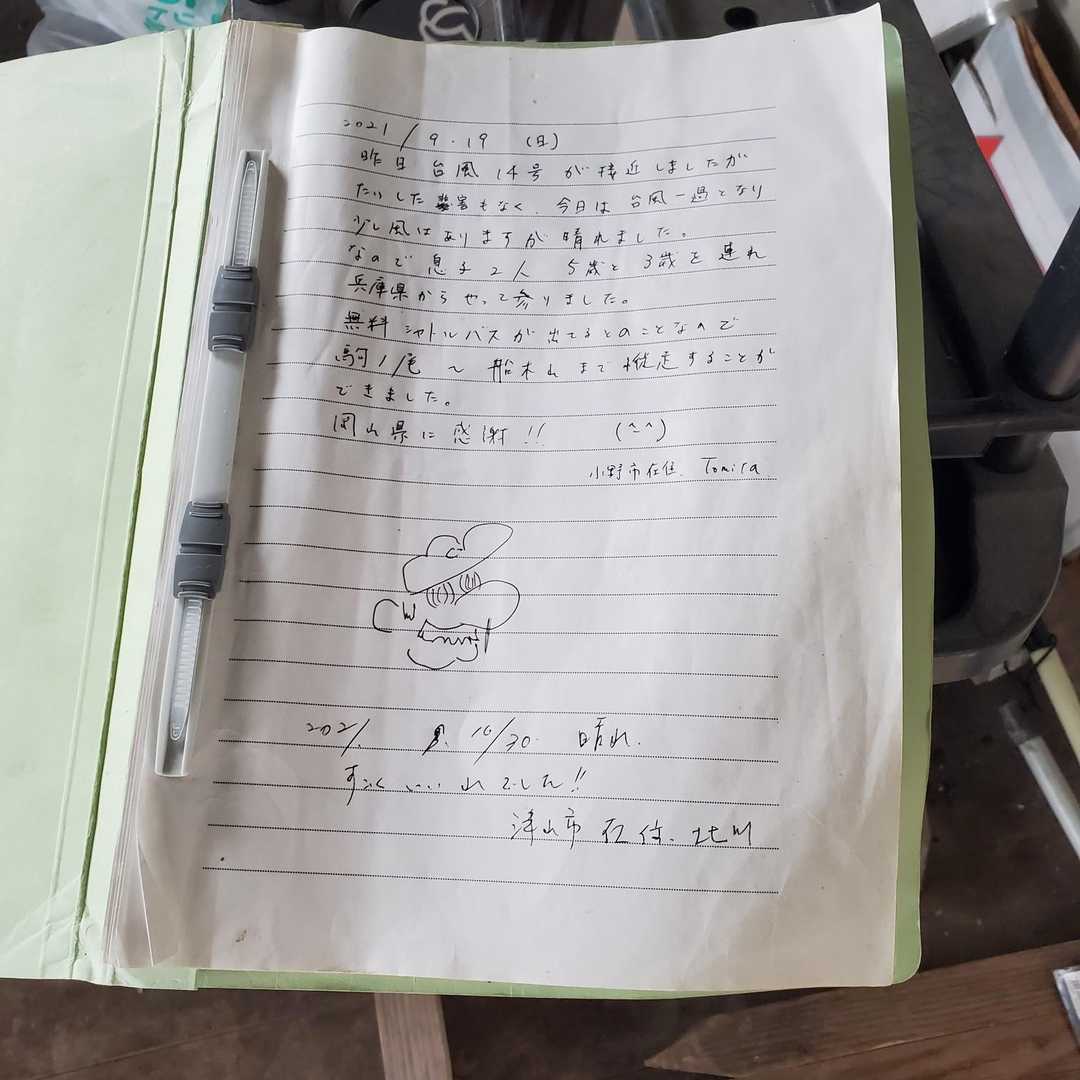 2021/9.19 (日)
昨日 台風14号が接近しましたが
たいした 害もなく、今日は 台風一過となり
少し風はありますが 晴れました。
なので 息子2人 5歳と3歳を連れ
兵庫県からやって参りました。
無料 シャトルバスが出てるとのことなので
駒ノ尾 〜 船木山まで 縦走することが
できました。
岡山県に感謝!! (^-^)
小野市在住.
2021. 10/30. 晴れ.
すごくいい山でした!!
津山市 在住. 北川